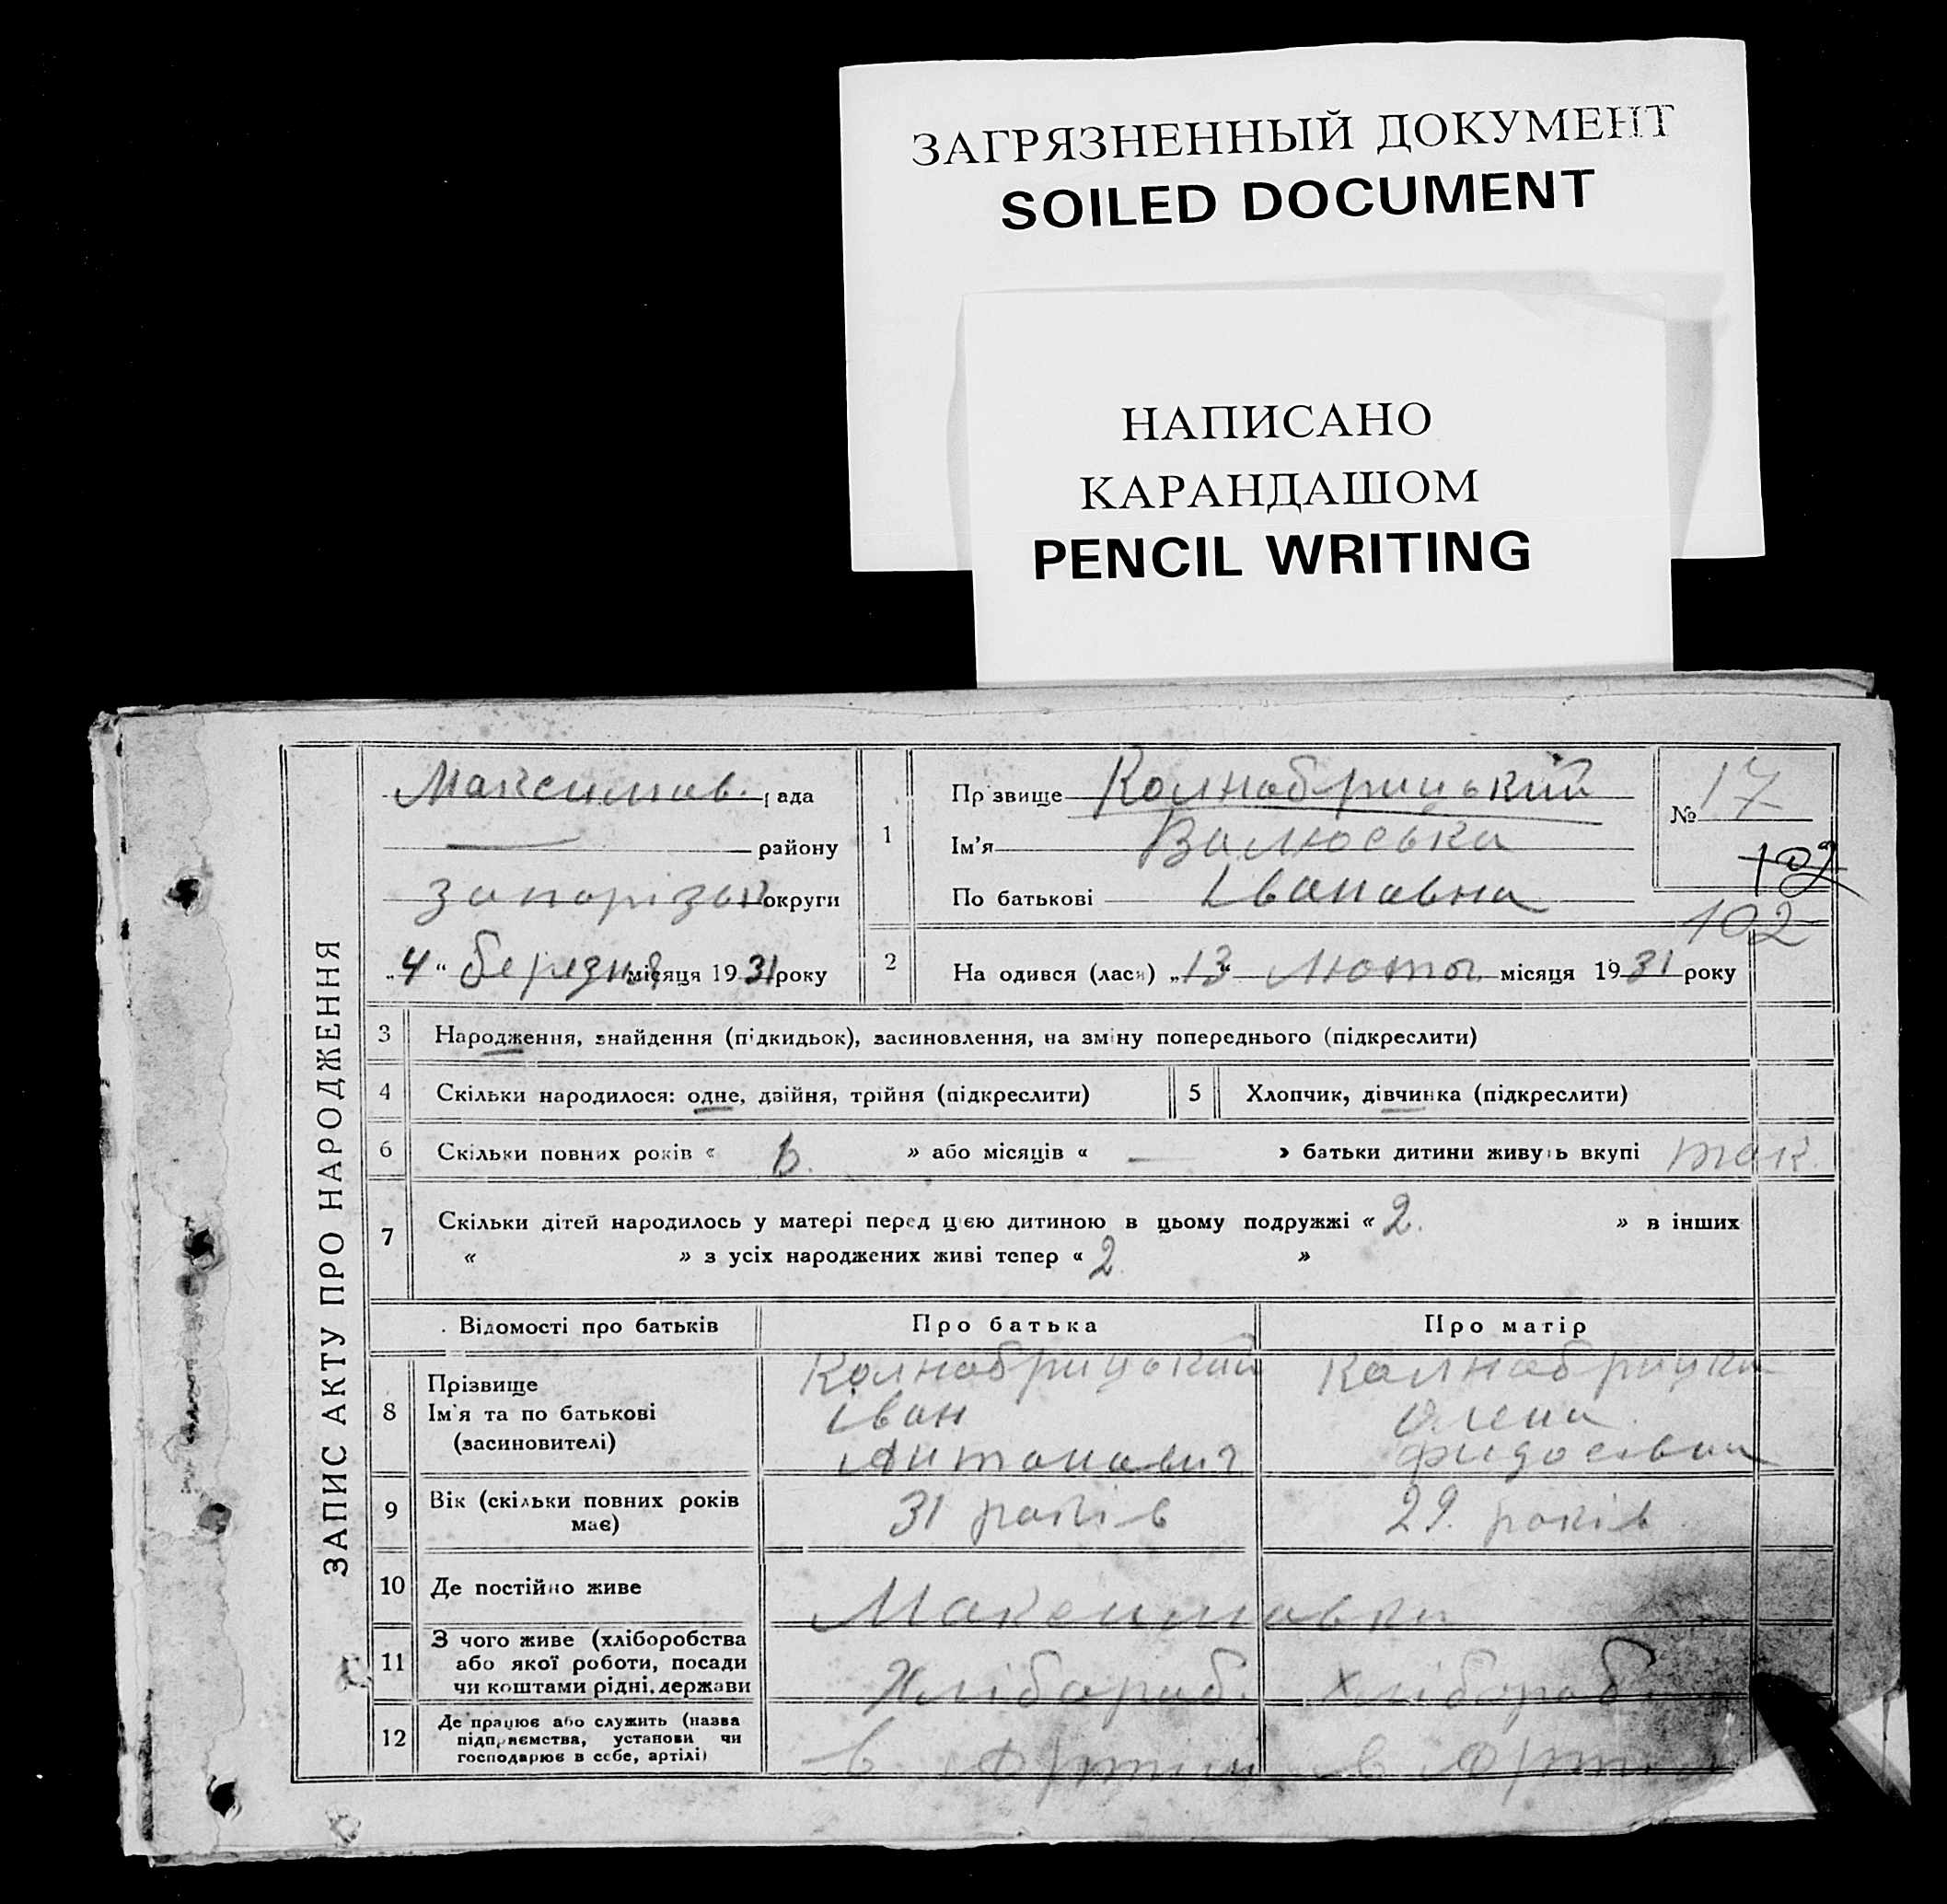 ЗАГРЯЗНЕННЫЙ ДОКУМЕНТ
SOILED DOCUMENT
НАПИСАНО
КАРАНДАШОМ
PENCIL WRITING
ЗАПИС АКТУ ПРО НАРОДЖЕННЯ
Максимов. рада
— району
Запорізьк округи
„4“ березня місяця 1931 року
1
Прізвище Колнобрицький
Ім'я Валюська
По батькові Івановна
№ 17
102
102
2
Народився (лася) „13“ Лютого місяця 1931 року
3 Народження, знайдення (підкидьок), засиновлення, на зміну попереднього (підкреслити)
4 Скільки народилося: одне, двійня, трійня (підкреслити) 5 Хлопчик, дівчинка (підкреслити)
6 Скільки повних років « 6. » або місяців « — » батьки дитини живуть вкупі так.
7 Скільки дітей народилось у матері перед цією дитиною в цьому подружжі « 2. » в інших
« » з усіх народжених живі тепер « 2 »
Відомості про батьків Про батька Про матір
8 Прізвище Колнобрицький Колнобрицка
Ім'я та по батькові Іван Олена
(засиновителі) Антонович Фидосівна
9 Вік (скільки повних років має) 31 років 29. років
10 Де постійно живе Максимовка
11 З чого живе (хліборобства Хлібороб. Хлібороб.
або якої роботи, посади
чи коштами рідні, держави
12 Де працює або служить (назва в Артілі в Артілі
підприємства, установи чи
господарює в себе, артілі)